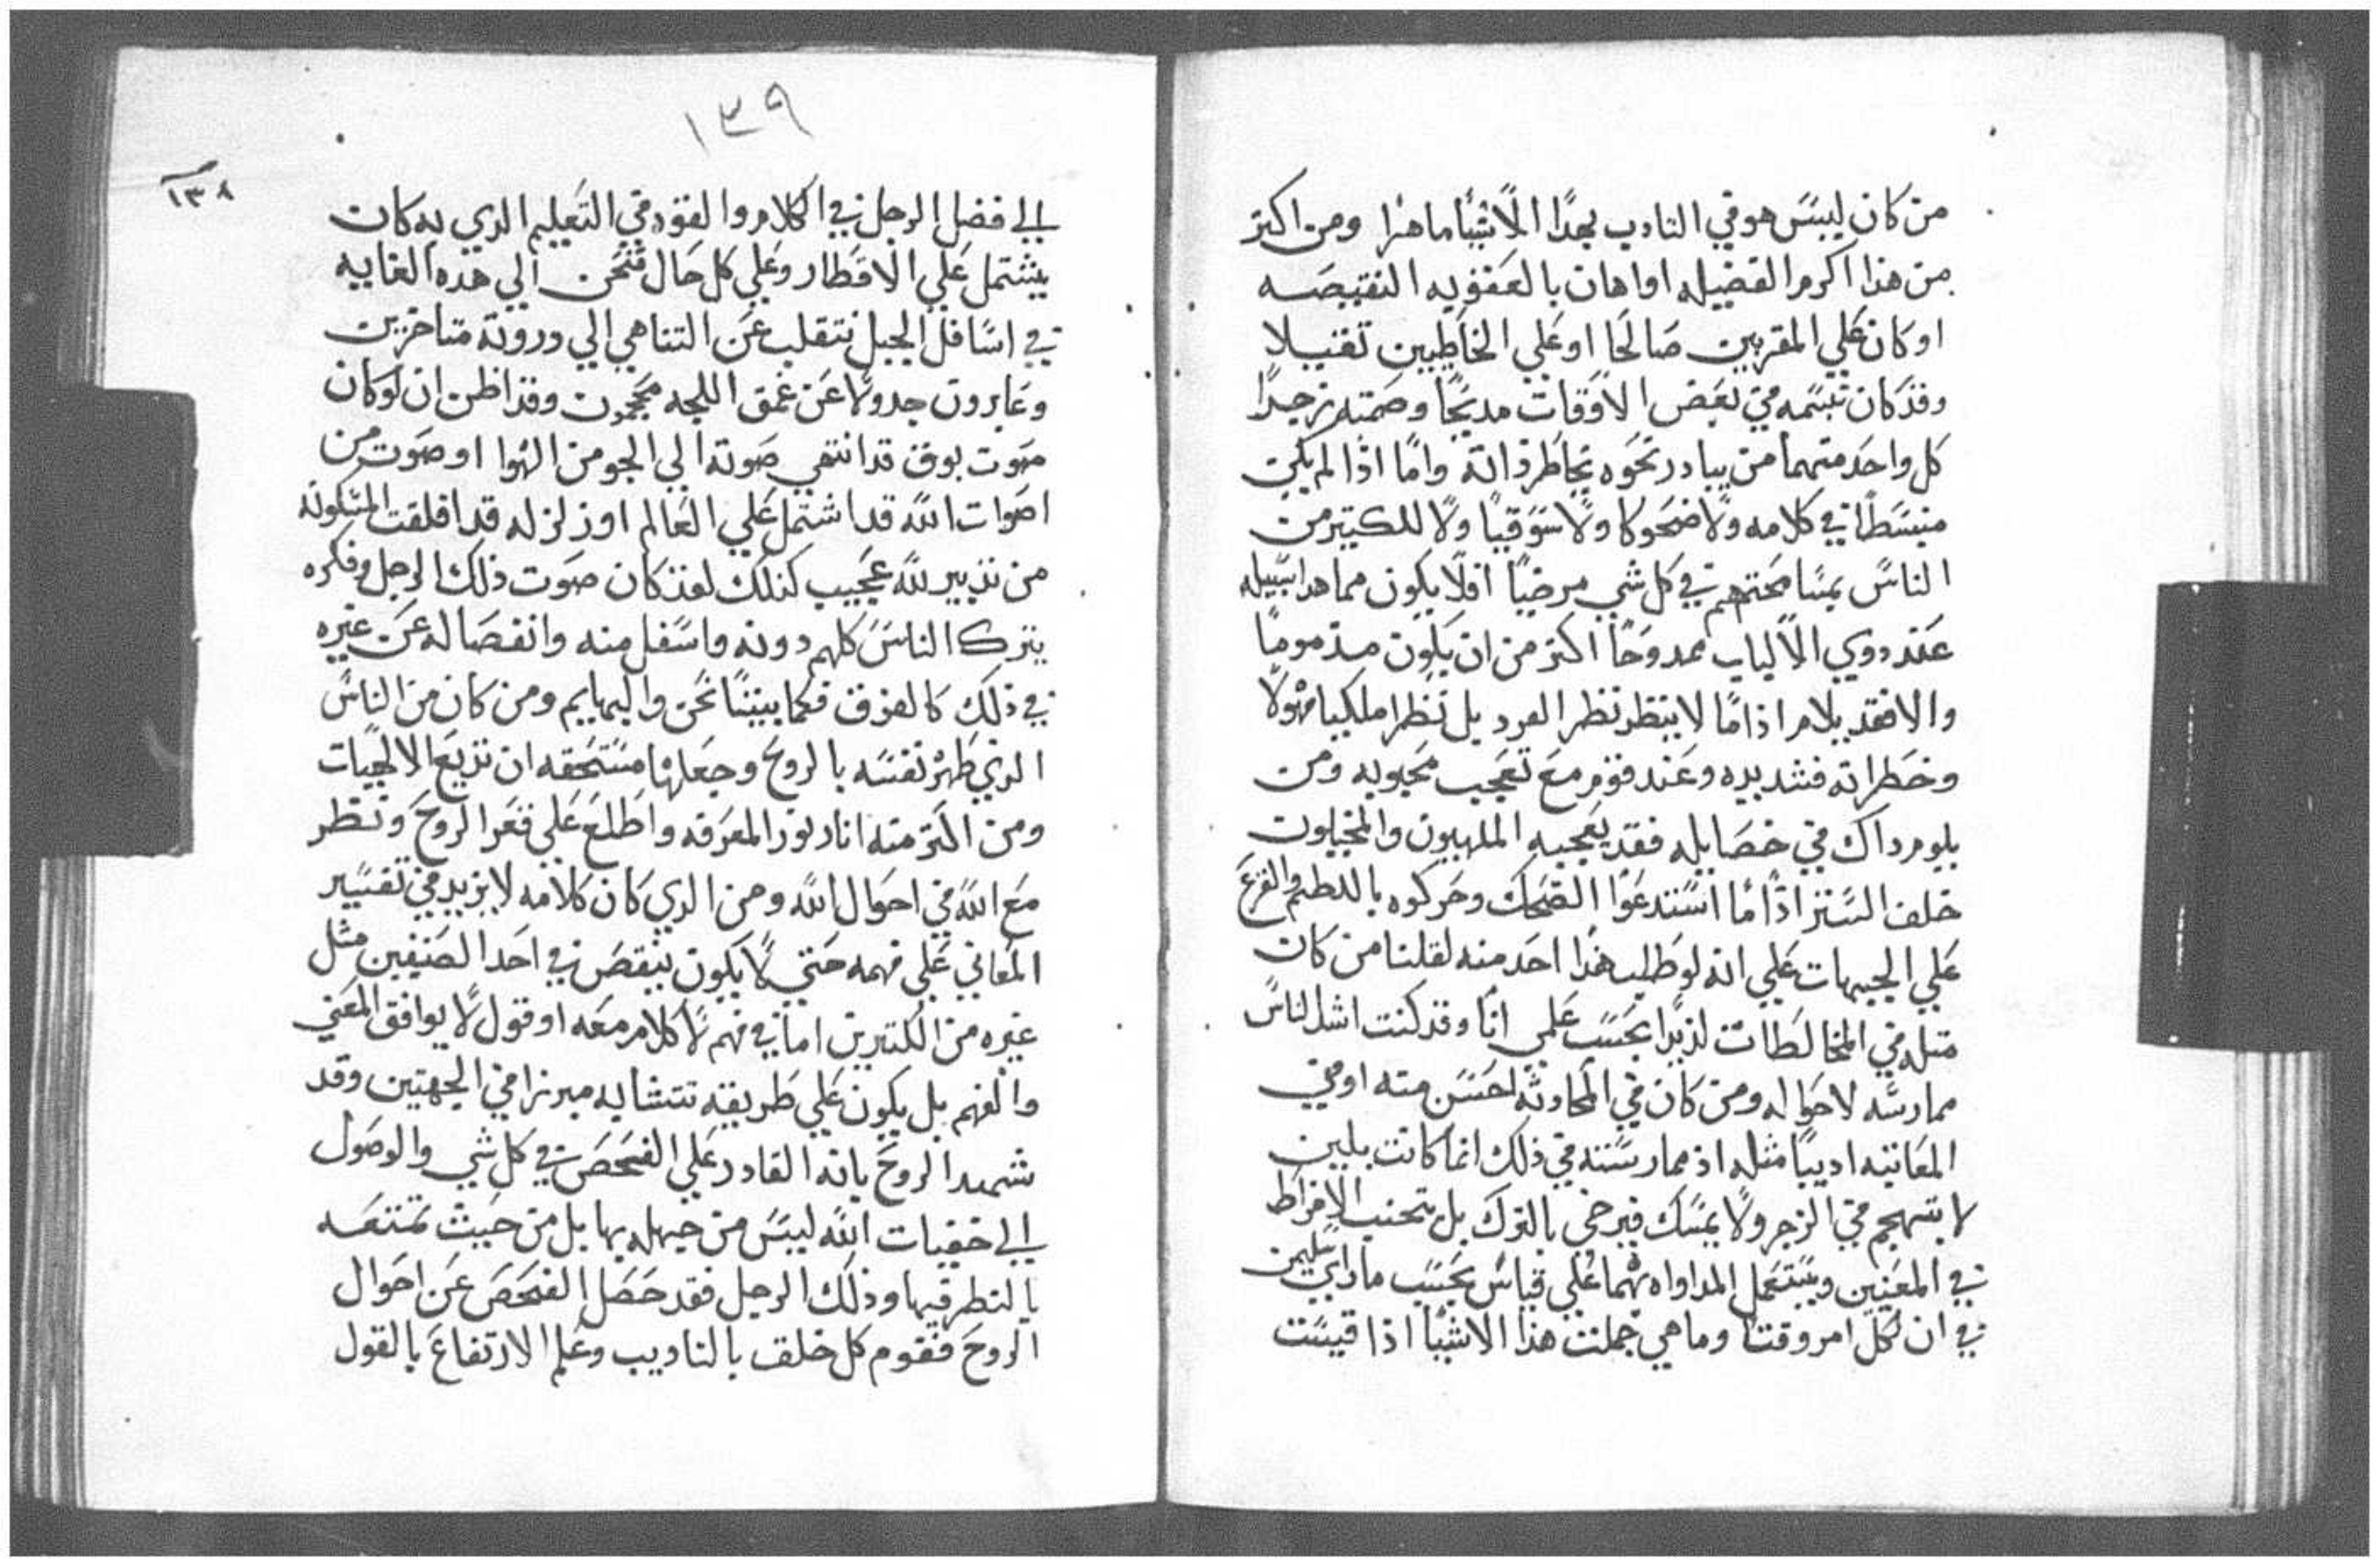 من كان ليس هو في التاديب بعدًا الاشيا ما هذا ومن اكثر
من هذا اكرم الفضيله او اهان بالعقوبه النقيصه
او كان علي المقربين صَالحًا او علي الخاطيين تقيلا
وقد كان تبسمه في بعض الاوقات مديحًا وصمته زجرًا
كل واحد منهما من يبادر نحوه بخاطر ذاته واما اذا لم يكن
منبسطًا في كلامه ولا ضحوكا ولا سوقيًا ولا للكتير من
الناس بمسامحتهم في كل شي مرضيًا افلا يكون مما هدا سبيله
عند دوي الالباب ممدوحًا اكتر من ان يكون مدمومًا
والا فقد يلام اذاما لا ينظر نظر القرد بل نظرا ملكيا مهولا
وخطراته فشديده وعند قوم مع تعجب محبوبه ومن
يلوم داك في خصايله فقد يعجبه الملهيون والمخيلون
خلف الستر اذا ما استدعوا الضحك وحركوه باللطم والقرع
علي الجبهات علي انه لو طلب هذا احد منه لقلنا من كان
متله في المخالطات لذيذا بحسب علمي انا وقد كنت اشد الناس
ممارسه لاحواله ومن كان في المحادثه احسن منه او في
المعاتبه اديبًا مثله اذ ممارسته في ذلك انما كانت بلين
لا يتهجم في الزجر ولا يمسك فيرخي بالترك بل يتجنب الافراط
في المعنيين ويستعمل المداواه بهما علي قياس بحسب ما راي سليمن
في ان لكل امر وقتا وما هي جملت هذا الاشيا اذا قيست
١٣٩
١٣٨
الي فضل الرجل في الكلام والقوه في التعليم الدي به كان
يشتمل علي الاقطار وعلي كل حال فنحن الي هده الغايه
في اسافل الجبل نتقلب عن التناهي الي دروته متاخرين
وعابرون جدولا عن عمق اللجه محجمون وقد اظن ان لو كان
صوت بوق قد انتهي صوته الي الجو من الهوا او صوت من
اصوات الله قد اشتمل علي العالم او زلزله قد اقلقت المسكونه
من تدبير لله عجيب كذلك لقد كان صوت ذلك الرجل وفكره
يترك الناس كلهم دونه واسفل منه وانفصاله عن غيره
في ذلك كالفرق فيما بيننا نحن والبهايم ومن كان من الناس
الدي طهر نفسه بالروح وجعلها مستحقه ان تذيع الالهيات
ومن اكتر منه انار بنور المعرفه واطلع علي قعر الروح ونظر
مع الله في احوال الله ومن الدي كان كلامه لا يزيد في تفسير
المعاني علي فهمه حتي لا يكون ينقص في احد الصنفين مثل
غيره من الكتيرين اما في فهم لا كلام معه او قول لا يوافق المعني
والفهم بل يكون علي طريقه تتشابه مبرزا في الجهتين وقد
شهد الروح بانه القادر علي الفحص في كل شي والوصول
الي خفيات الله ليس من جهله بها بل من حيث تمتعه
بالنظر فيها وذلك الرجل فقد حصل الفحص عن احوال
الروح فقوم كل خلق بالتاديب وعلم الارتفاع بالقول